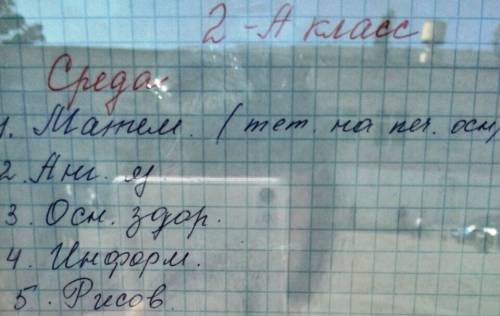 2-А класс
Среда
1. Матем. (тет. на печ. осн)
2. Анг. яз.
3. Осн. здор.
4. Информ.
5. Рисов.